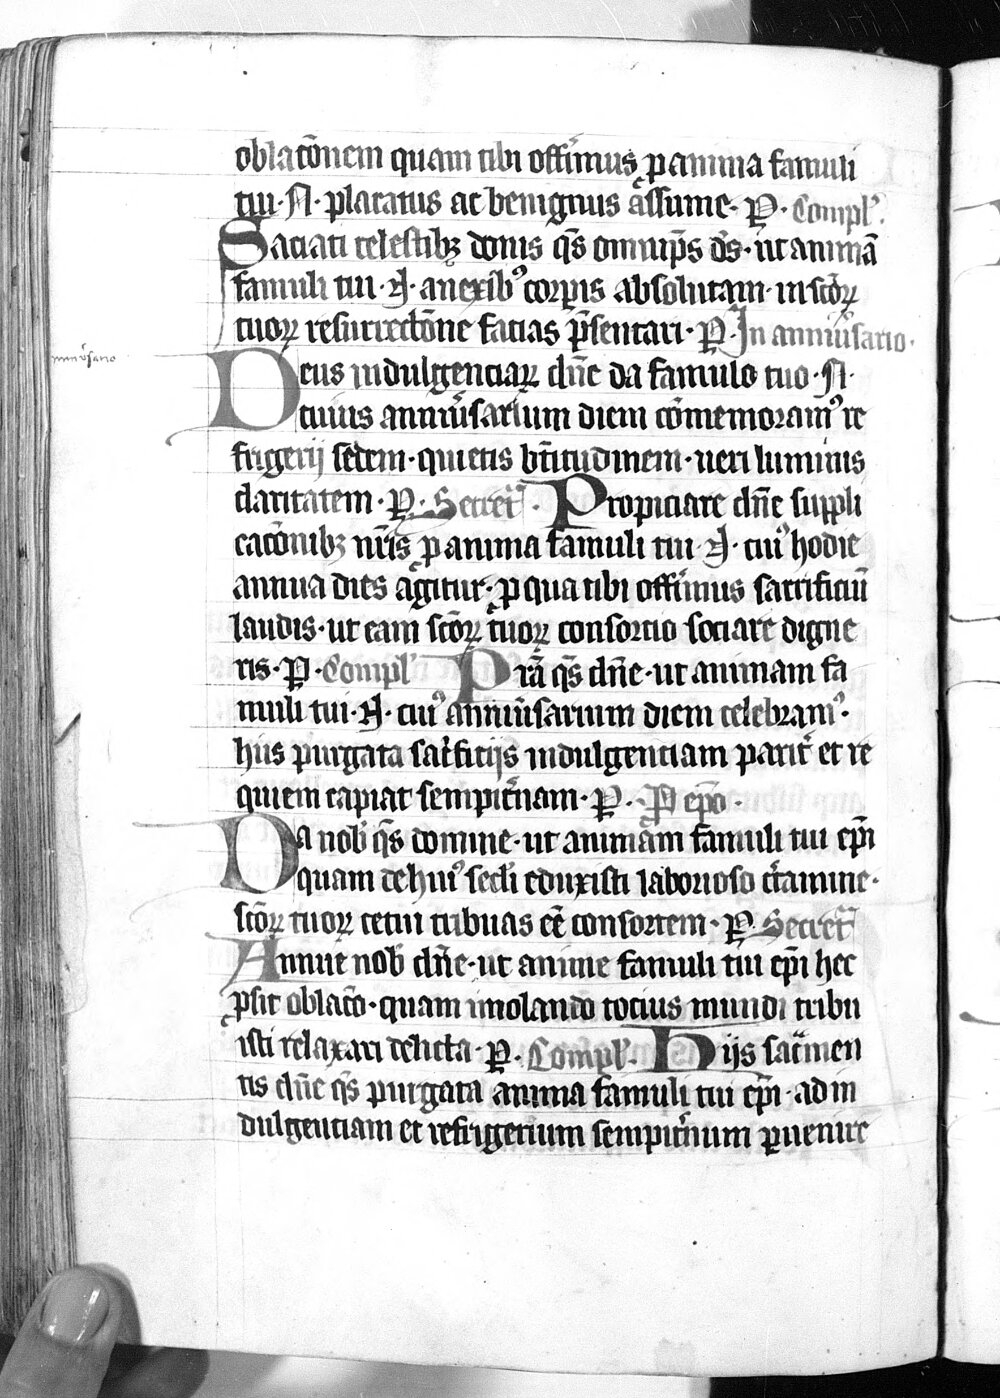 oblatōnem quam tibi offerimꝰ ꝓ anima famuli
tui · N · placatus ac benignus assume · P · Compl'.
Saciati celestibꝫ donis qs̄ omnip̄s ds̄ · ut animā
famuli tui · N · a nexibꝰ corꝑis absolutam · in sc̄oꝝ
tuoꝝ resurrectōne facias p̄sentari · P · In anniūsario ·
minūsario
Deus indulgenciaꝝ dn̄e da famulo tuo · N ·
cuius anniūsarium diem cōmemoramꝰ re
frigerij sedem · quietis bt̄itudinem · ueri luminis
claritatem · P · Secret̄ · Propiciare dn̄e suppli
cacōnibꝫ nr̄is ꝓ anima famuli tui · N · cuiꝰ hodie
annua dies agitur · ꝓ qua tibi offerimus sacrificiū
laudis · ut eam sc̄oꝝ tuoꝝ consorcio sociare digne
ris · P · Compl' Prā qs̄ dn̄e · ut animam fa
muli tui · N · cuiꝰ anniūsarium diem celebramꝰ ·
hiis purgata sac̄ficijs indulgenciam parit̄ et re
quiem capiat sempit̄nam · P · P ep̄o ·
Da nob' qs̄ domine · ut animam famuli tui ep̄i
quam de huiꝰ sec̄li eduxisti laborioso c̄tamine ·
sc̄oꝝ tuoꝝ cetui tribuas ēē consortem · P · Secret̄
Annue nob' dn̄e · ut anime famuli tui ep̄i hec
ꝓsit oblac̄o · quam imolando tocius mundi tribu
isti relaxari delicta · P · Compl'. Hijs sac̄men
tis dn̄e qs̄ purgata anima famuli tui ep̄i · ad in
dulgentiam et refrigerium sempit̄num ꝑuenire